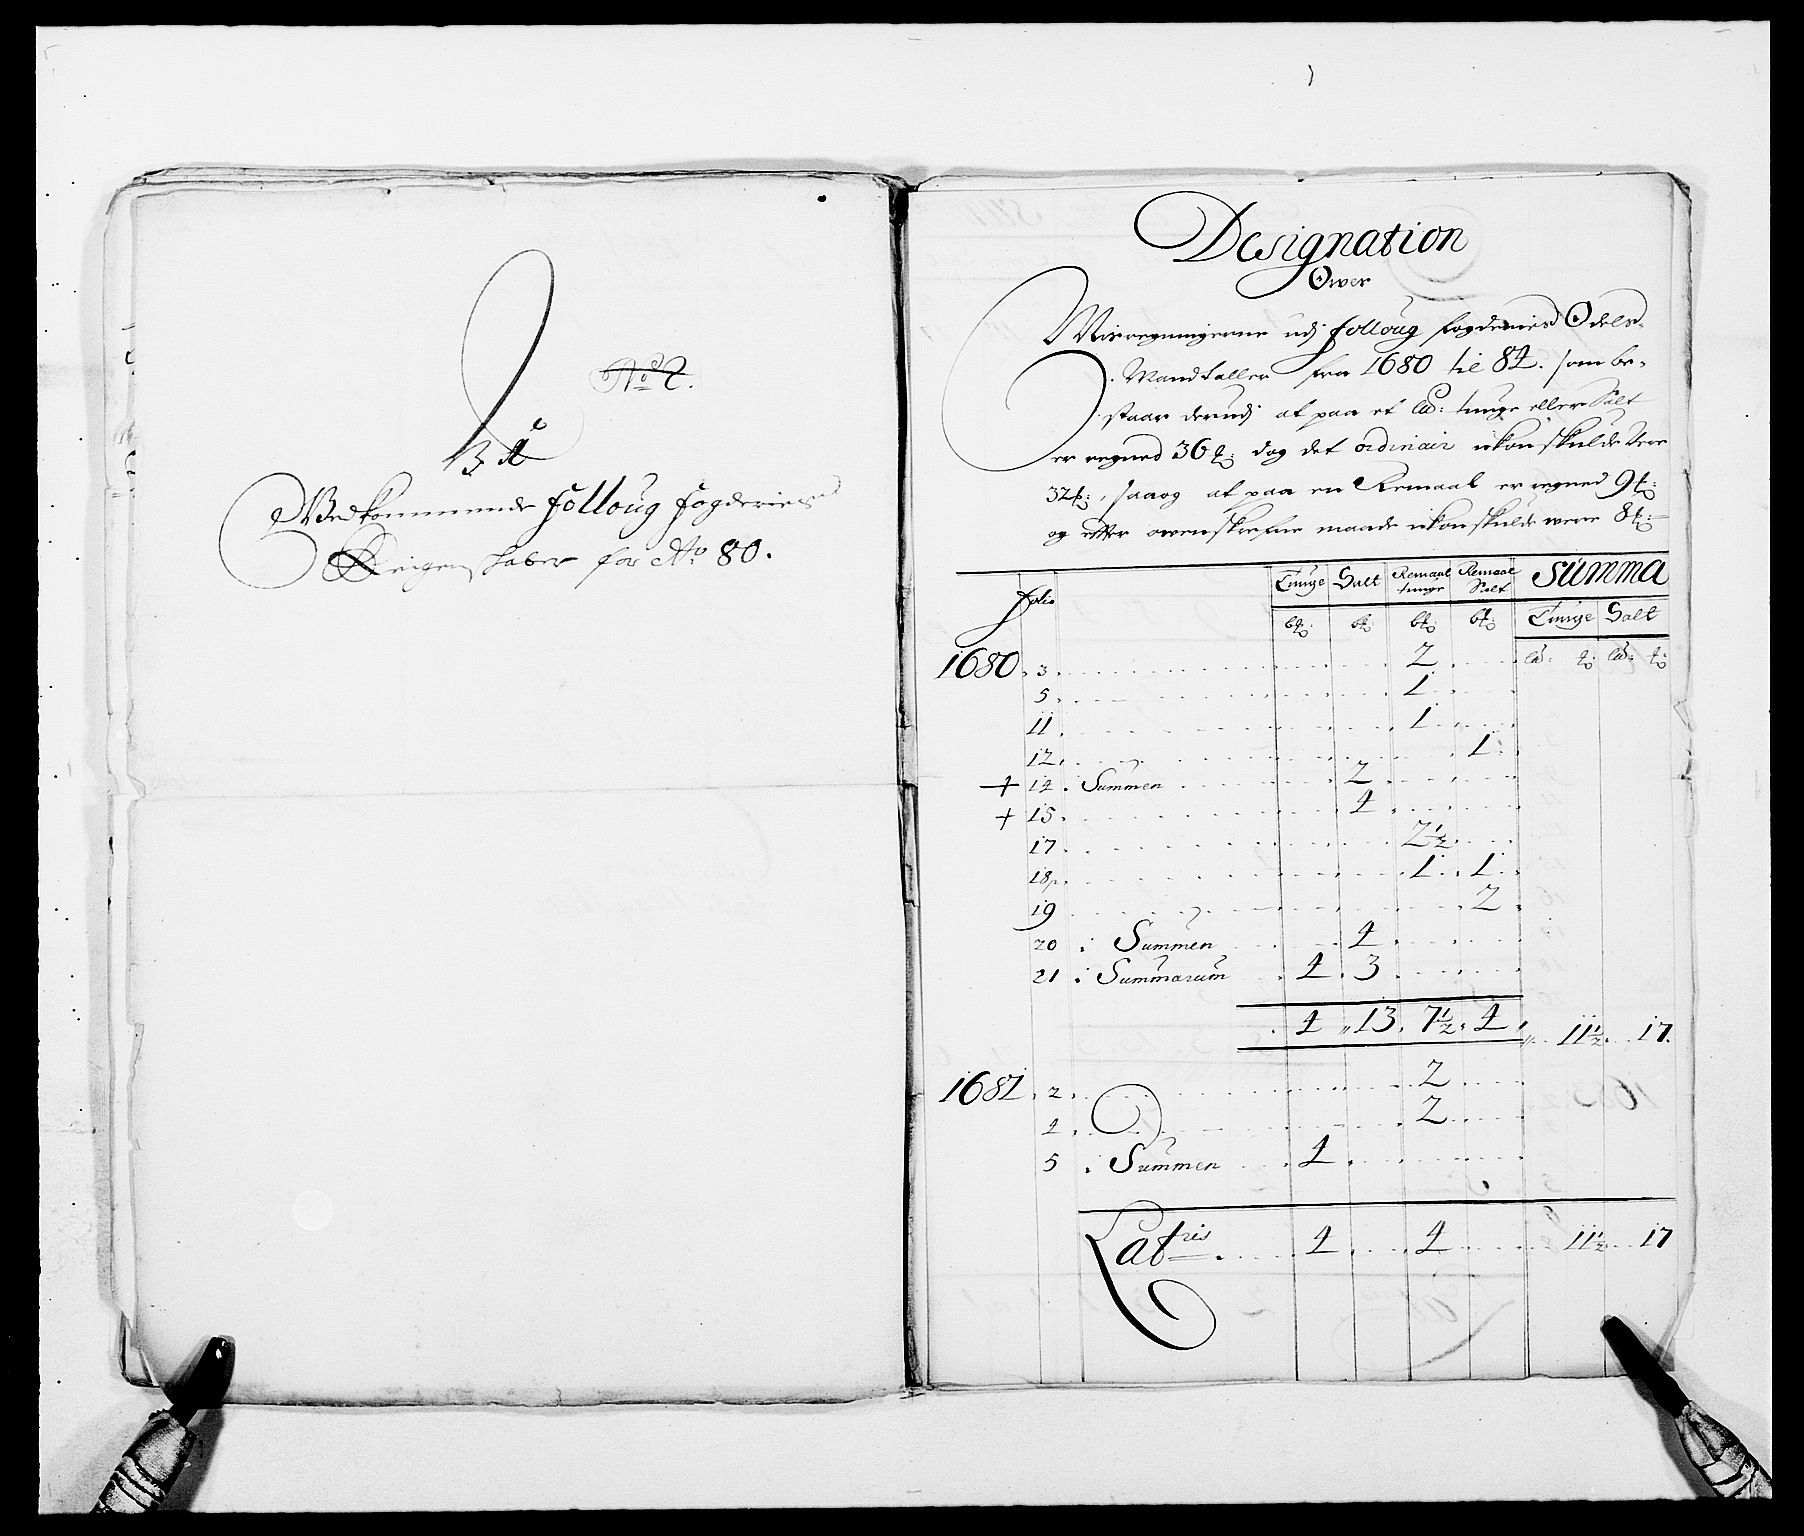 No 2.
Vedkommende Folloug Fogderies
Reigenskaber for Ao 80.
Designation
Over
Misregningerne udj Folloug Fogderies Odels-
Mandtaller fra 1680 til 84. som be-
staar derudj at paa et Ld: tunge eller Salt
er regned 36 ß: dog det ordinair ickon skulde Vere
32 ß:, saaog at paa en Remaal er regned 9 ß:
og efter ovenskrefne maade ickon skulde were 8 ß:
Folio Tunge Salt Remaal tunge Remaal Salt Summa
Tunge Salt
1680. 3. 2
5. 1
11. 1
12. 1
+ 14. Summen 2
+ 15. 4
17. 2½
18. 1 1
19 2
20 i Summen 4
21 i Summarum 4 3
4 13. 7½ 4 11½ 17.
1681. 2. 2
4. 2
5 i Summen 4
Latris 4 4 11½ 17